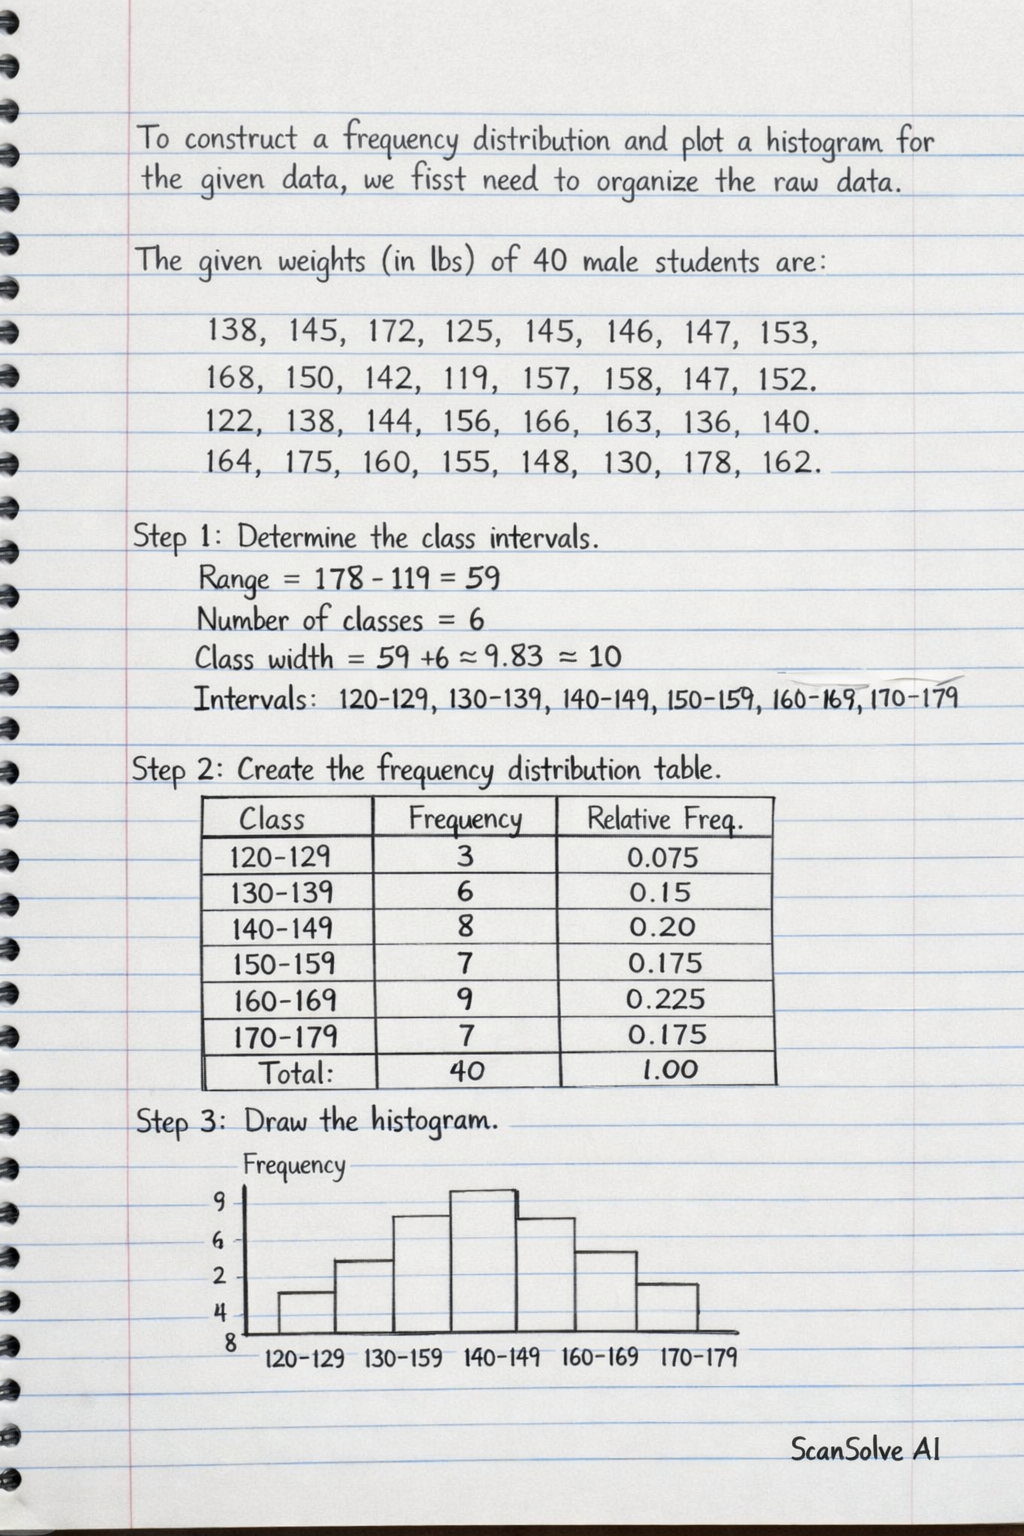 To construct a frequency distribution and plot a histogram for
the given data, we fisst need to organize the raw data.
The given weights (in lbs) of 40 male students are:
138, 145, 172, 125, 145, 146, 147, 153,
168, 150, 142, 119, 157, 158, 147, 152.
122, 138, 144, 156, 166, 163, 136, 140.
164, 175, 160, 155, 148, 130, 178, 162.
Step 1: Determine the class intervals.
Range = 178 - 119 = 59
Number of classes = 6
Class width = 59 +6 ≈ 9.83 ≈ 10
Intervals: 120-129, 130-139, 140-149, 150-159, 160-169, 170-179
Step 2: Create the frequency distribution table.
Class Frequency Relative Freq.
120-129 3 0.075
130-139 6 0.15
140-149 8 0.20
150-159 7 0.175
160-169 9 0.225
170-179 7 0.175
Total: 40 1.00
Step 3: Draw the histogram.
Frequency
9
6
2
4
8
120-129 130-159 140-149 160-169 170-179
ScanSolve AI